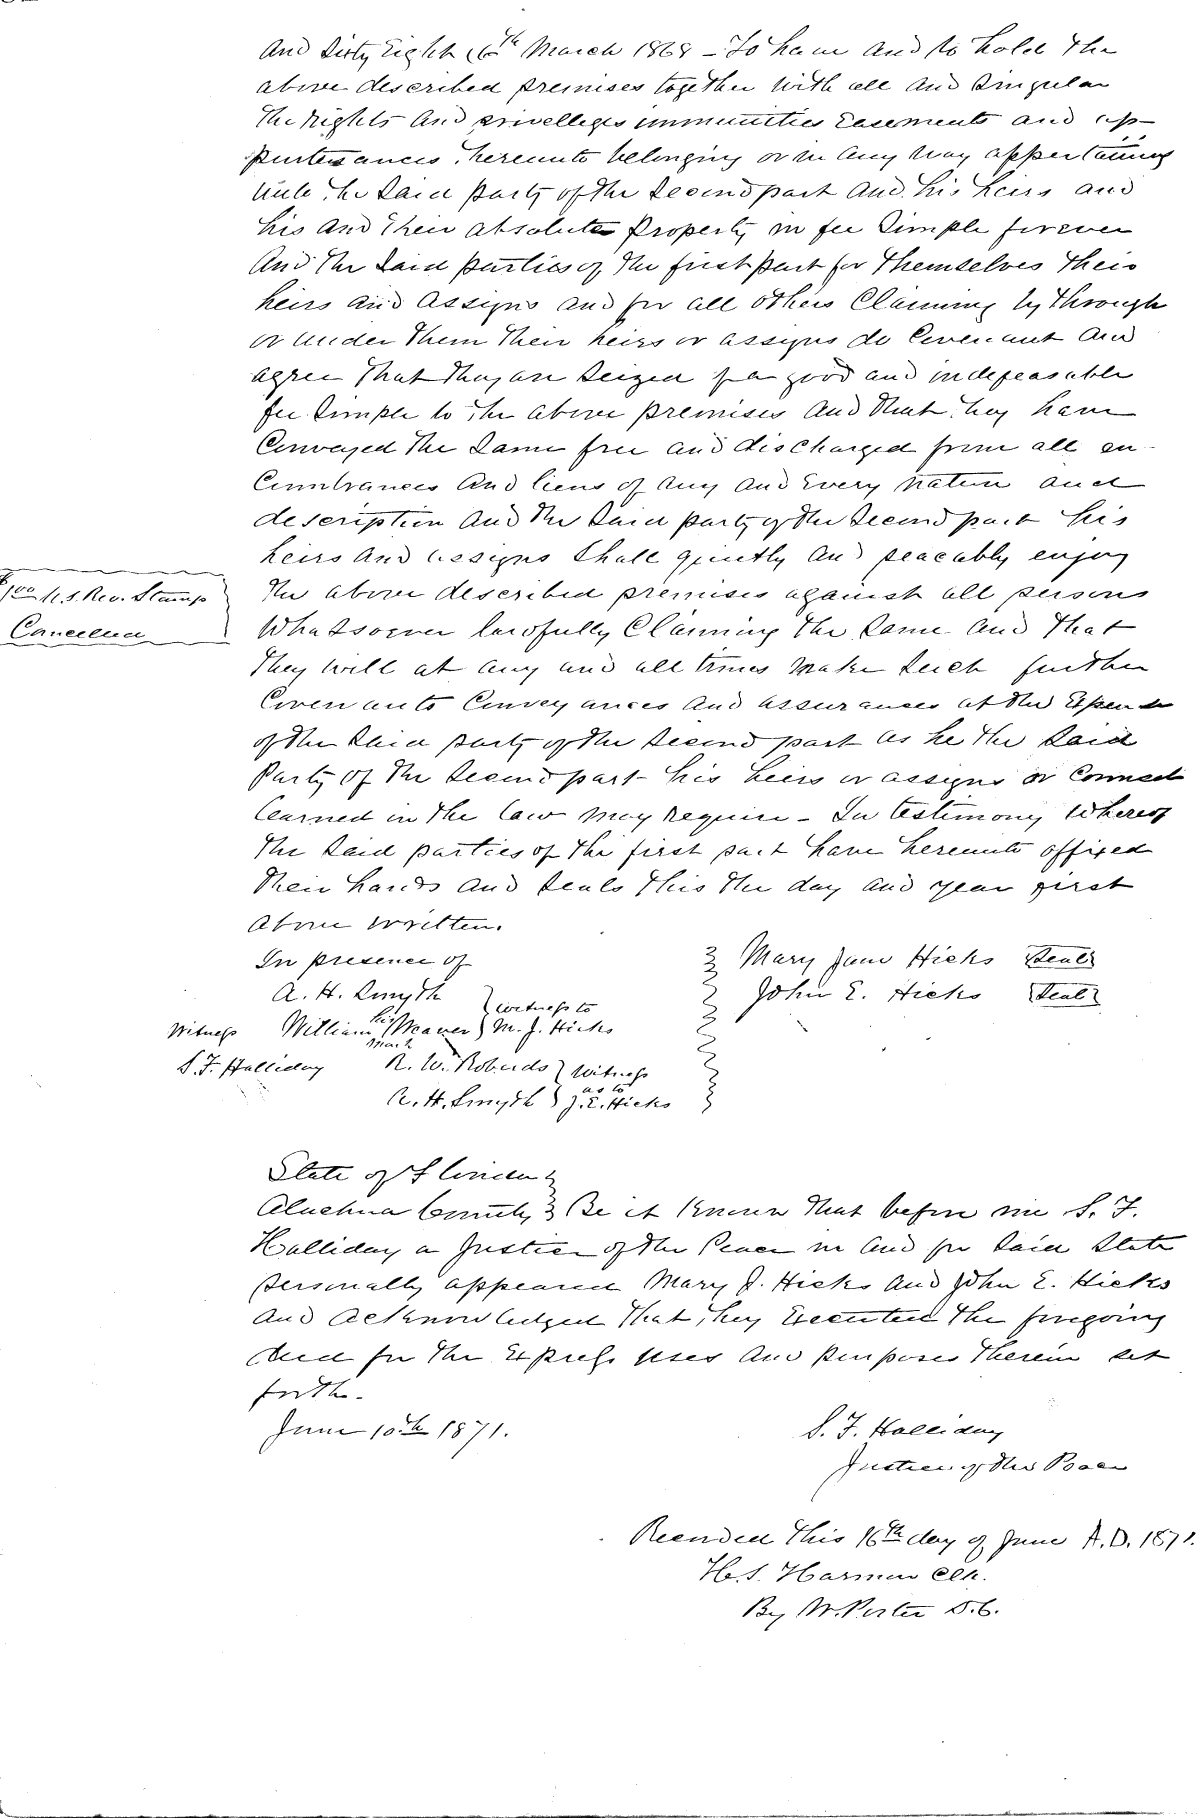 And Sixty Eight 16th March 1868 – To have and to hold the
above described premises together with all and Singular
the rights and privelleges immunities Easements and ap-
purtenances hereunto belonging or in any way appertaining
unto the Said party of the Second part and his heirs and
his and their absolute Property in fee Simple forever
And the Said parties of the first part for themselves their
heirs and assigns and for all others Claiming by through
or under them their heirs or assigns do Covenant and
agree that they are Seized of a good and indefeasable
fee Simple to the above premises and that they have
Conveyed the Same free and discharged from all en-
Cumbrances and liens of any and Every nature and
description and the Said party of the Second part his
heirs and assigns Shall quietly and peacably enjoy
$1.00 U.S. Rev. Stamp
Cancelled
the above described premises against all persons
Whatsoever lawfully Claiming the Same and that
they will at any and all times make Such further
Covenants Conveyances and assurances at the Expense
of the Said party of the Second part as he the Said
Party of the Second part his heirs or assigns or Counsel
learned in the law may require – In testimony Whereof
the Said parties of the first part have hereunto affixed
their hands and Seals this the day and year first
above written.
In presence of
Mary Jane Hicks Seal
A. H. Smyth
John E. Hicks Seal
Witness to
Witness William his Weaver M. J. Hicks
mark
S. F. Halliday R. W. Roberds Witness
as to
A. H. Smyth J. E. Hicks
State of Florida
Alachua County Be it Known that before me S. F.
Halliday a Justice of the Peace in and for Said State
personally appeared Mary J. Hicks and John E. Hicks
and acknowledged that they Executed the foregoing
deed for the Express uses and purposes therein set
forth.
June 10th 1871.
S. F. Halliday
Justice of the Peace
Recorded this 16th day of June A.D. 1871.
H. S. Harmon Clk.
By W. Porter D.C.